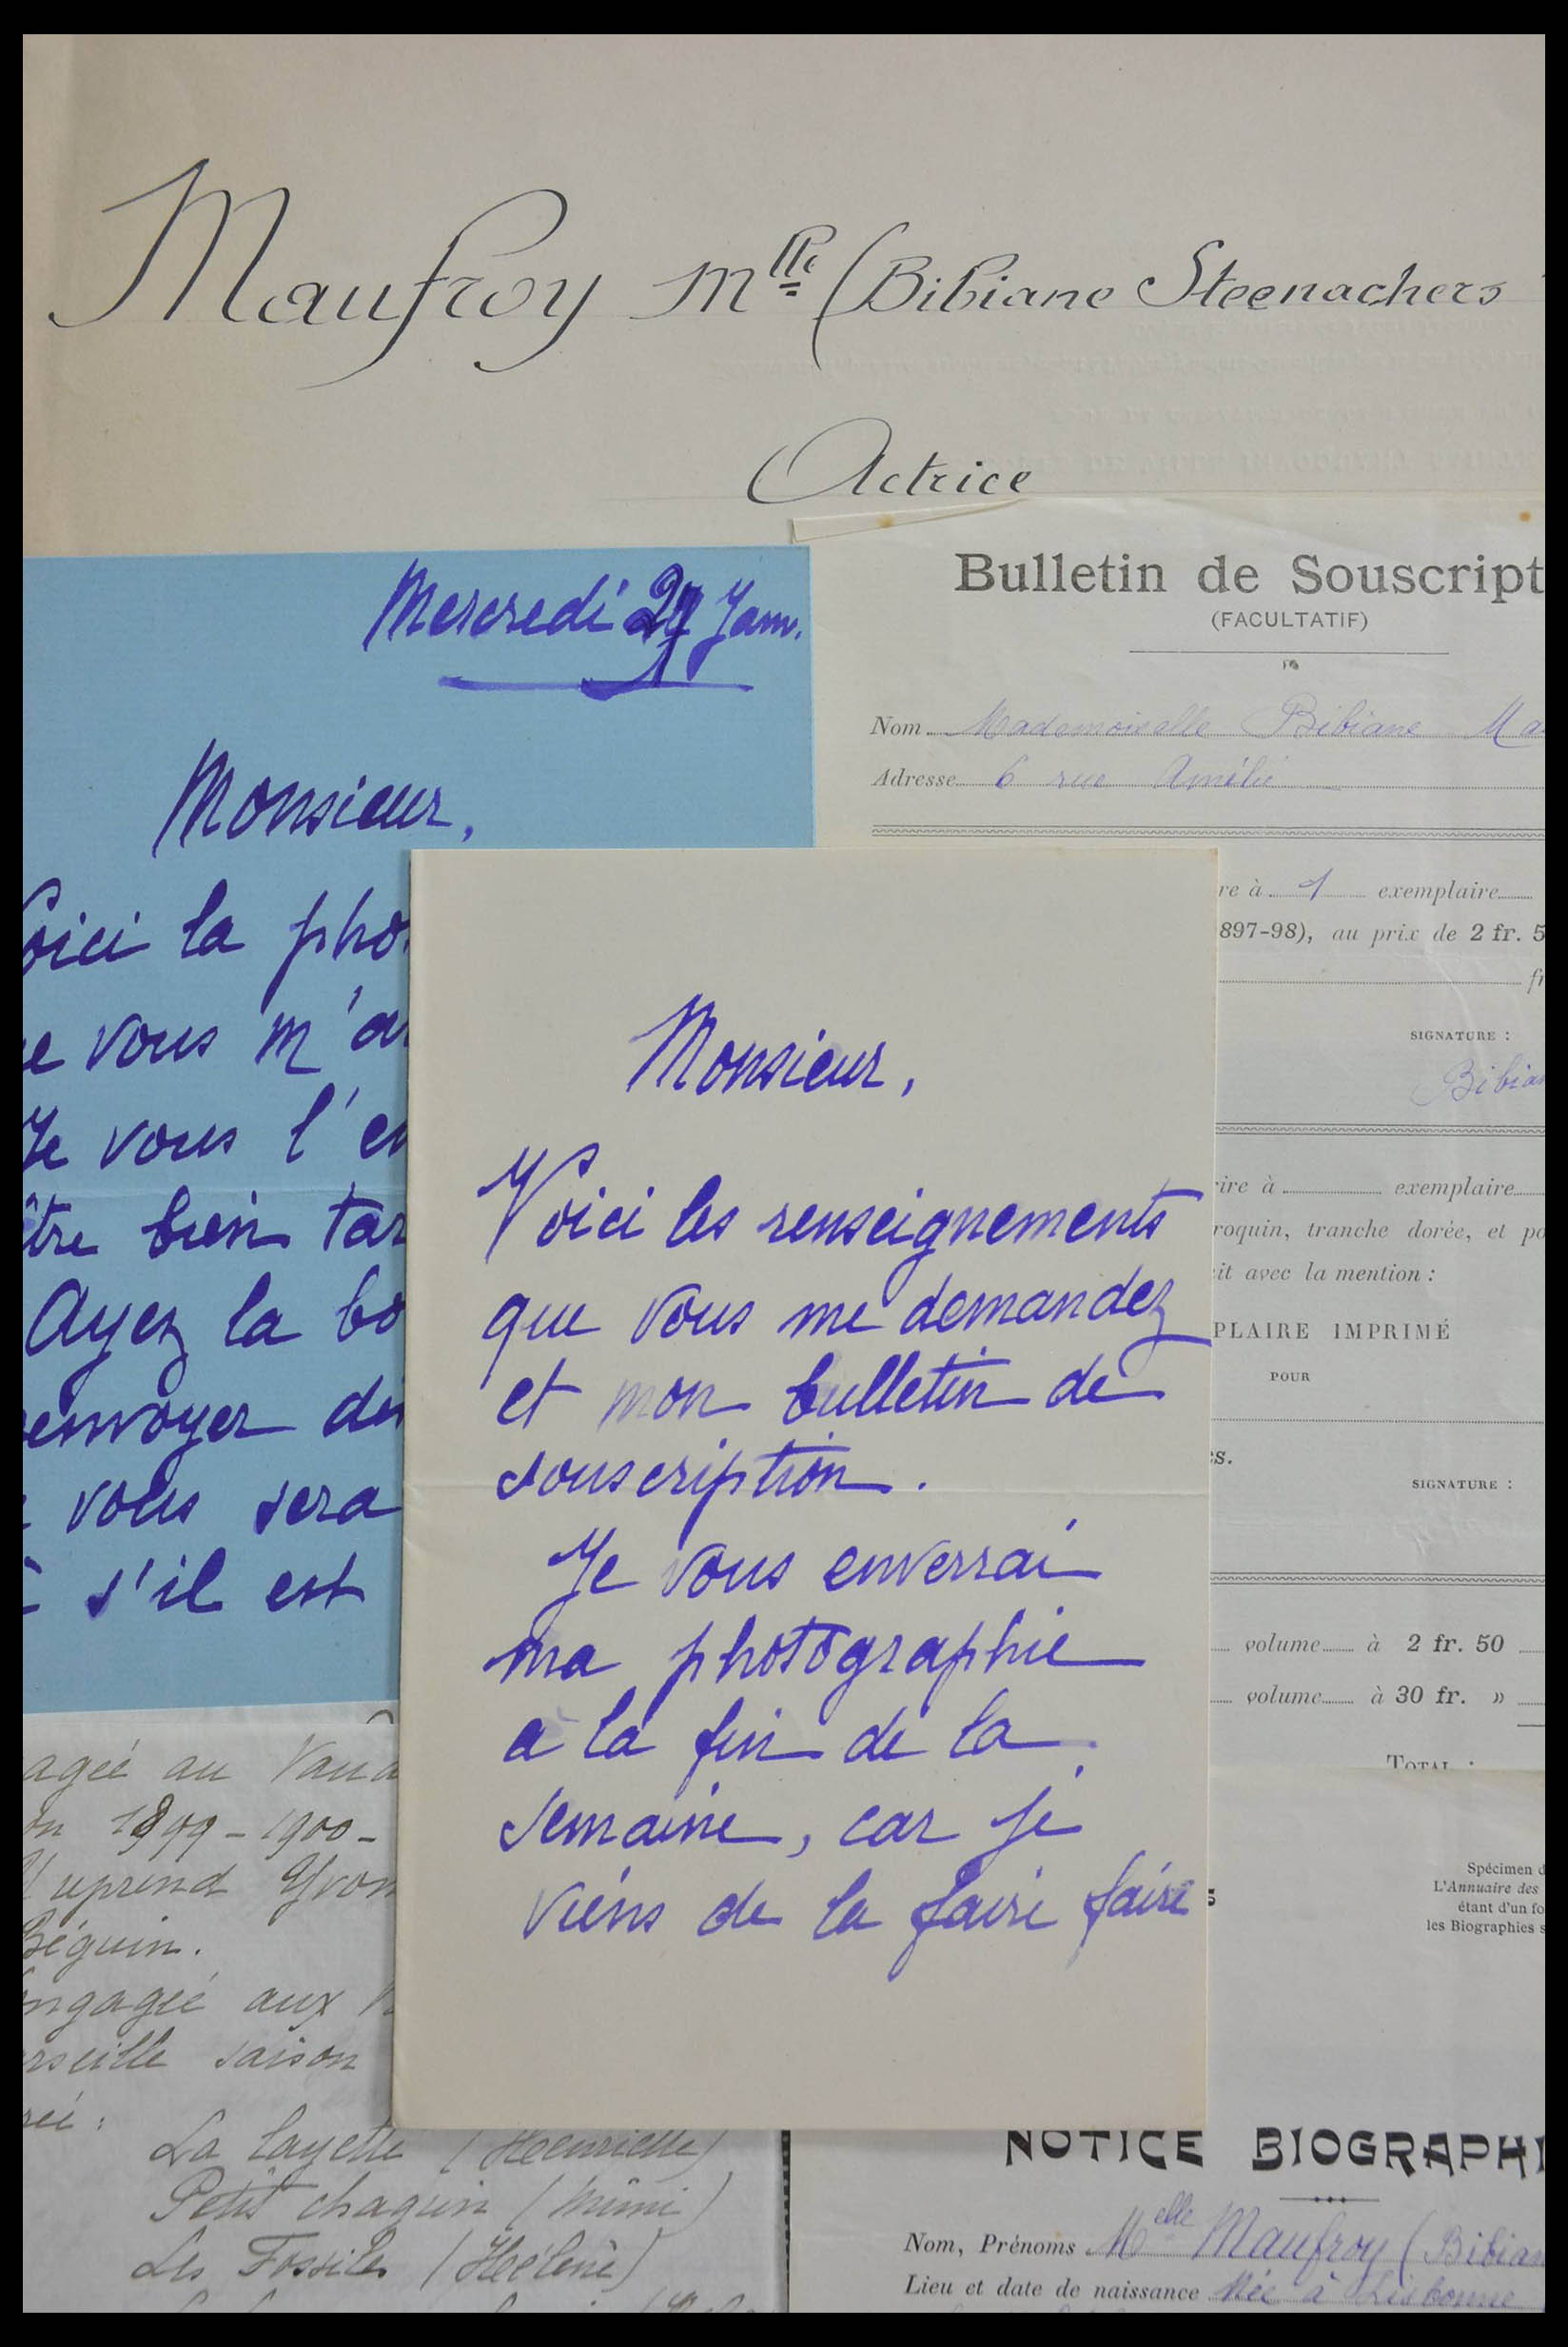 Maufroy Mlle (Bibiane Steenachers
Actrice
Mercredi 27 Janv.
Monsieur,
oici la pho
e vous m'a
Je vous l'en
être bien tar
Ayez la bo
envoyer
vous sera
s'il est
Bulletin de Souscript
(FACULTATIF)
Nom Mademoiselle Bibiane Ma
Adresse 6 rue Amélie
re à 1 exemplaire
897-98), au prix de 2 fr. 5
fr
SIGNATURE :
Bibian
rire à exemplaire
roquin, tranche dorée, et po
it avec la mention :
PLAIRE IMPRIMÉ
POUR
s.
SIGNATURE :
volume à 2 fr. 50
volume à 30 fr. »
TOTAL :
Monsieur,
Voici les renseignements
que vous me demandez
et mon bulletin de
souscription.
Je vous enverrai
ma photographie
a la fin de la
semaine, car je
viens de la faire faire
agée au Vaud
on 1899-1900-
reprend Yvon
Béguin.
engagée aux
rseille saison
rée :
La layette (Henriette)
Petit chagrin (Mimi)
Les Fossiles (Hélène)
Spécimen d
L'Annuaire des
étant d'un fo
les Biographies s
NOTICE BIOGRAPHI
Nom, Prénoms Melle Maufroy (Bibian
Lieu et date de naissance Née à Lisbonne